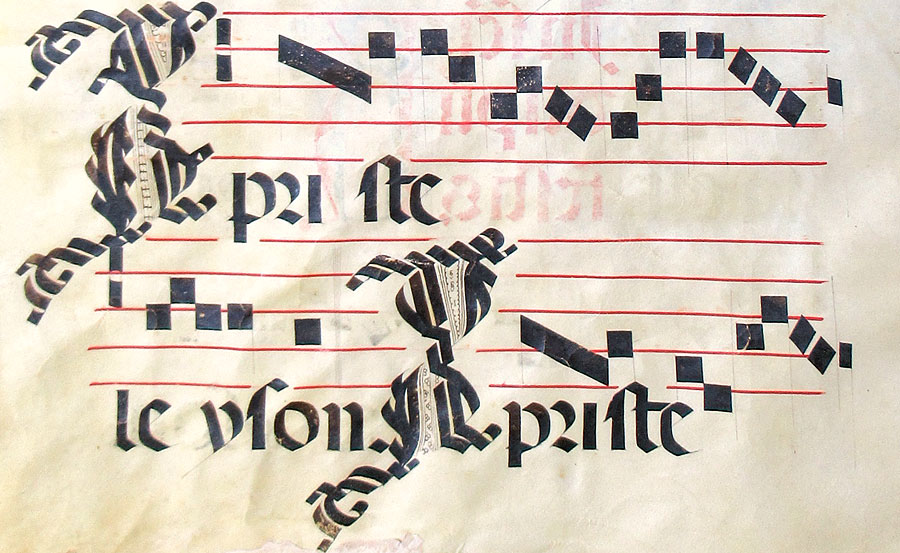 Xpri ste
le yson. Xpriste